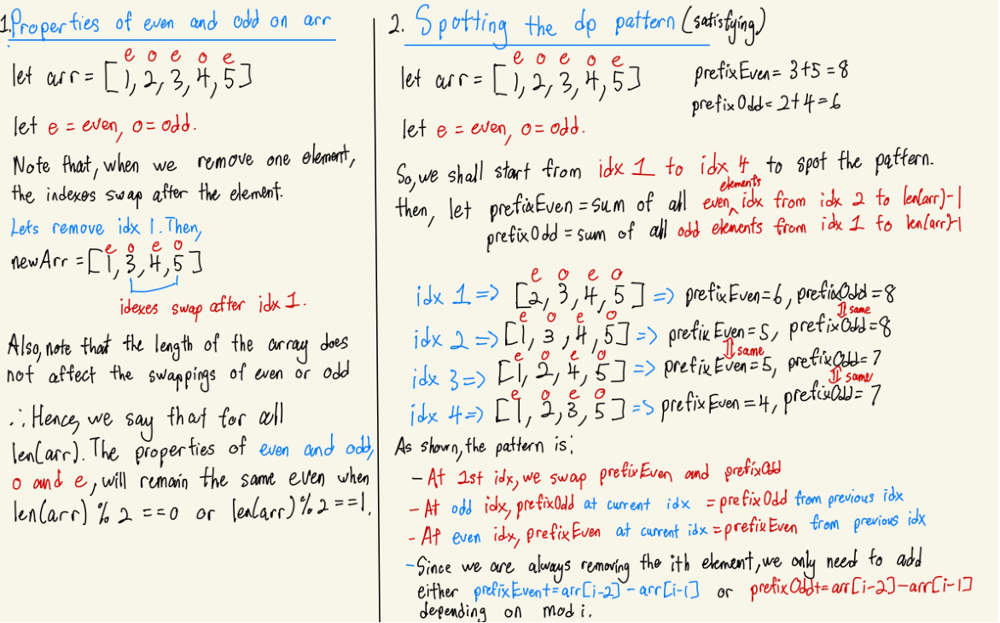 1. Properties of even and odd on arr
e o e o e
let arr = [1, 2, 3, 4, 5]
let e = even, o = odd.
Note that, when we remove one element,
the indexes swap after the element.
Lets remove idx 1. Then,
e o e o
newArr = [1, 3, 4, 5]
idexes swap after idx 1.
Also, note that the length of the array does
not affect the swappings of even or odd
∴ Hence, we say that for all
len(arr). The properties of even and odd,
o and e, will remain the same even when
len(arr) % 2 == 0 or len(arr) % 2 == 1.
2. Spotting the dp pattern (satisfying)
e o e o e
let arr = [1, 2, 3, 4, 5]
prefixEven = 3+5 = 8
prefixOdd = 2+4 = 6
let e = even, o = odd.
So, we shall start from idx 1 to idx 4 to spot the pattern.
elements
then, let prefixEven = sum of all even idx from idx 2 to len(arr)-1
prefixOdd = sum of all odd elements from idx 1 to len(arr)-1
e o e o
idx 1 => [2, 3, 4, 5] => prefixEven = 6, prefixOdd = 8
same
e o e o
idx 2 => [1, 3, 4, 5] => prefixEven = 5, prefixOdd = 8
same
e o e o
idx 3 => [1, 2, 4, 5] => prefixEven = 5, prefixOdd = 7
same
e o e o
idx 4 => [1, 2, 3, 5] => prefixEven = 4, prefixOdd = 7
As shown, the pattern is:
- At 1st idx, we swap prefixEven and prefixOdd
- At odd idx, prefixOdd at current idx = prefixOdd from previous idx
- At even idx, prefixEven at current idx = prefixEven from previous idx
- Since we are always removing the ith element, we only need to add
either prefixEven += arr[i-2] - arr[i-1] or prefixOdd += arr[i-2] - arr[i-1]
depending on mod i.